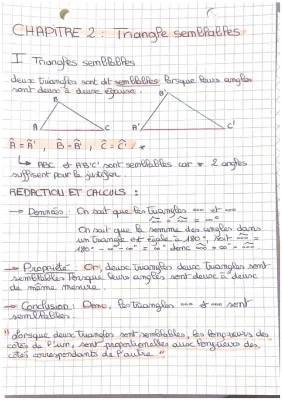 CHAPITRE 2 : Triangle semblables
I Triangles semblables
deux triangles sont dit semblables lorsque leurs angles
sont deux à deux égaux.
B B'
A C A' C'
Â = Â', B̂ = B̂', Ĉ = Ĉ' *
↳ ABC et A'B'C' sont semblables car * 2 angles
suffisent pour le justifier.
REDACTION ET CALCULS :
→ Données : On sait que les triangles --- et ---
On sait que la somme des angles dans
un triangle est égale à 180°, soit
180° - --° - --° = --° donc
→ Propriété : Or, deux triangles deux triangles sont
semblables lorsque leurs angles sont deux à deux
de même mesure.
→ Conclusion : Donc, les triangles --- et --- sont
semblables.
"Lorsque deux triangles sont semblables, les longueurs des
côtés de l'un, sont proportionnelles aux longueurs des
côtés correspondants de l'autre"